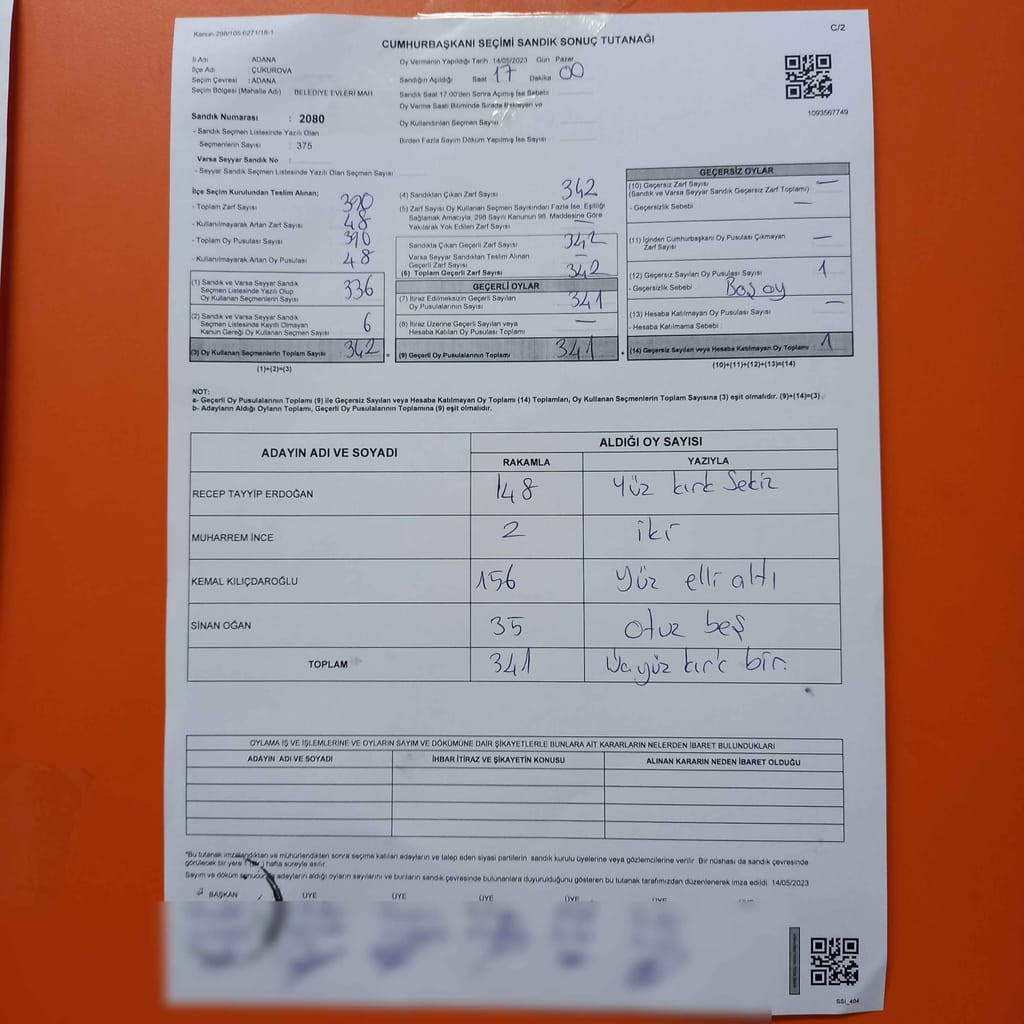 Kanun 298/105,6271/18-1
C/2
CUMHURBAŞKANI SEÇİMİ SANDIK SONUÇ TUTANAĞI
İl Adı : ADANA
İlçe Adı : ÇUKUROVA
Seçim Çevresi : ADANA
Seçim Bölgesi (Mahalle Adı) : BELEDİYE EVLERİ MAH.
Oy Vermenin Yapıldığı Tarih 14/05/2023 Gün Pazar
Sandığın Açıldığı Saat 17 Dakika 00
Sandık Saat 17:00'den Sonra Açılmış İse Sebebi
Oy Verme Saati Bitiminde Sırada Bekleyen ve
Oy Kullandırılan Seçmen Sayısı
Birden Fazla Sayım Döküm Yapılmış İse Sayısı
1093567749
Sandık Numarası : 2080
- Sandık Seçmen Listesinde Yazılı Olan
Seçmenlerin Sayısı : 375
Varsa Seyyar Sandık No :
- Seyyar Sandık Seçmen Listesinde Yazılı Olan Seçmen Sayısı
İlçe Seçim Kurulundan Teslim Alınan;
- Toplam Zarf Sayısı 390
- Kullanılmayarak Artan Zarf Sayısı 48
- Toplam Oy Pusulası Sayısı 390
- Kullanılmayarak Artan Oy Pusulası 48
(1) Sandık ve Varsa Seyyar Sandık
Seçmen Listesinde Yazılı Olup
Oy Kullanan Seçmenlerin Sayısı 336
(2) Sandık ve Varsa Seyyar Sandık
Seçmen Listesinde Kayıtlı Olmayan
Kanun Gereği Oy Kullanan Seçmen Sayısı 6
(3) Oy Kullanan Seçmenlerin Toplam Sayısı 342 =
(1)+(2)=(3)
(4) Sandıktan Çıkan Zarf Sayısı 342
(5) Zarf Sayısı Oy Kullanan Seçmen Sayısından Fazla İse, Eşitliği
Sağlamak Amacıyla, 298 Sayılı Kanunun 98. Maddesine Göre
Yakılarak Yok Edilen Zarf Sayısı —
Sandıkta Çıkan Geçerli Zarf Sayısı 342
Varsa Seyyar Sandıktan Teslim Alınan
Geçerli Zarf Sayısı —
(6) Toplam Geçerli Zarf Sayısı 342
GEÇERLİ OYLAR
(7) İtiraz Edilmeksizin Geçerli Sayılan
Oy Pusulalarının Sayısı 341
(8) İtiraz Üzerine Geçerli Sayılan veya
Hesaba Katılan Oy Pusulası Toplamı —
(9) Geçerli Oy Pusulalarının Toplamı 341 +
GEÇERSİZ OYLAR
(10) Geçersiz Zarf Sayısı —
(Sandık ve Varsa Seyyar Sandık Geçersiz Zarf Toplamı)
- Geçersizlik Sebebi —
(11) İçinden Cumhurbaşkanı Oy Pusulası Çıkmayan
Zarf Sayısı —
(12) Geçersiz Sayılan Oy Pusulası Sayısı 1
- Geçersizlik Sebebi Boş oy
(13) Hesaba Katılmayan Oy Pusulası Sayısı —
- Hesaba Katılmama Sebebi
(14) Geçersiz Sayılan veya Hesaba Katılmayan Oy Toplamı : 1
(10)+(11)+(12)+(13)=(14)
NOT:
a- Geçerli Oy Pusulalarının Toplamı (9) ile Geçersiz Sayılan veya Hesaba Katılmayan Oy Toplamı (14) Toplamları, Oy Kullanan Seçmenlerin Toplam Sayısına (3) eşit olmalıdır. (9)+(14)=(3) .
b- Adayların Aldığı Oyların Toplamı, Geçerli Oy Pusulalarının Toplamına (9) eşit olmalıdır.
ADAYIN ADI VE SOYADI ALDIĞI OY SAYISI
RAKAMLA YAZIYLA
RECEP TAYYİP ERDOĞAN 148 Yüz kırk Sekiz
MUHARREM İNCE 2 iki
KEMAL KILIÇDAROĞLU 156 yüz elli altı
SİNAN OĞAN 35 otuz beş
TOPLAM 341 Üçyüz kırk bir.
OYLAMA İŞ VE İŞLEMLERİNE VE OYLARIN SAYIM VE DÖKÜMÜNE DAİR ŞİKAYETLERLE BUNLARA AİT KARARLARIN NELERDEN İBARET BULUNDUKLARI
ADAYIN ADI VE SOYADI İHBAR İTİRAZ VE ŞİKAYETİN KONUSU ALINAN KARARIN NEDEN İBARET OLDUĞU
*Bu tutanak imzalandıktan ve mühürlendikten sonra seçime katılan adayların ve talep eden siyasi partilerin sandık kurulu üyelerine veya gözlemcilerine verilir. Bir nüshası da sandık çevresinde
görülecek bir yere 1 (bir) hafta süreyle asılır.
Sayım ve döküm sonucunda adayların aldığı oyların sayılarını ve bunların sandık çevresinde bulunanlara duyurulduğunu gösteren bu tutanak tarafımızdan düzenlenerek imza edildi. 14/05/2023
BAŞKAN ÜYE ÜYE ÜYE ÜYE ÜYE
SSI_404